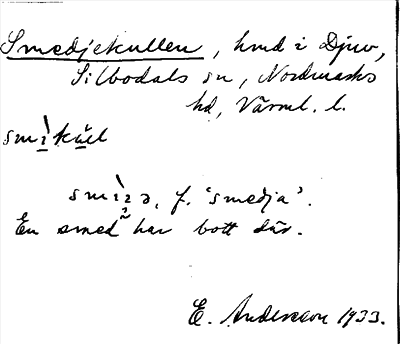 Smedjekullen, hmd i Djuv,
Silbodals sn, Nordmarks
hd, Värml. l.
smìkùl
f. 'smedja'.
En smed har bott där.
E. Andersson 1933.